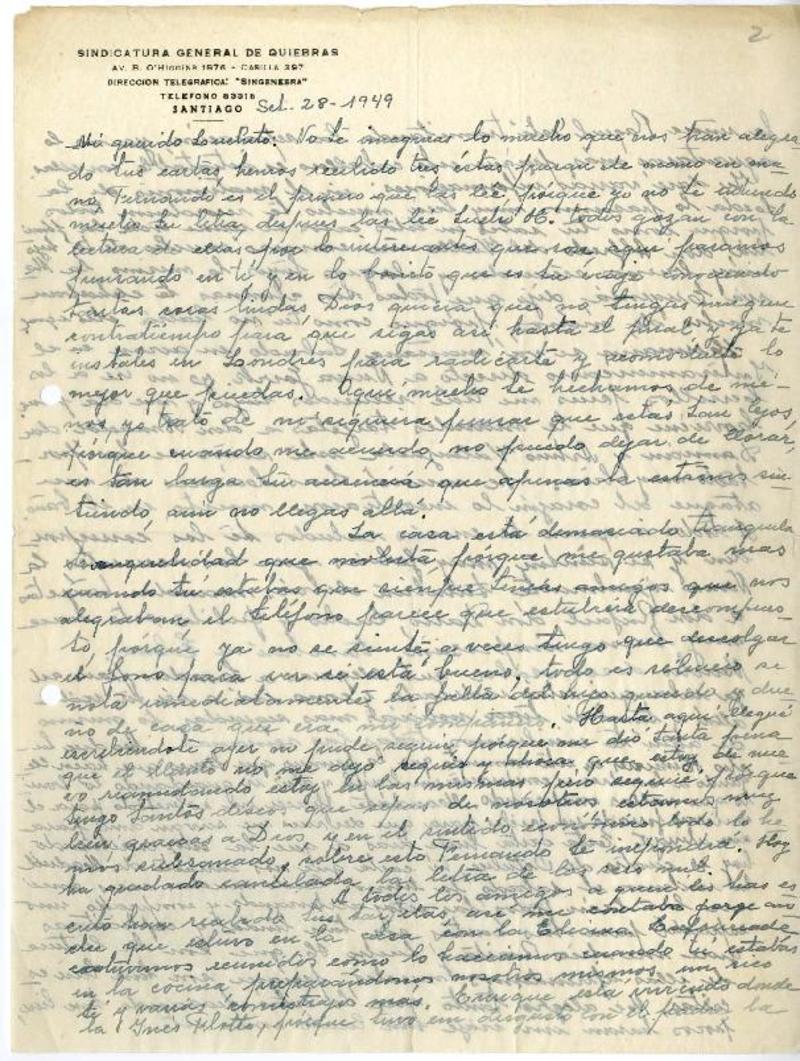 2
SINDICATURA GENERAL DE QUIEBRAS
AV. B. O'HIGGINS 1876 - CASILLA 297
DIRECCION TELEGRAFICA: "SINGENESRA"
TELEFONO 83315
SANTIAGO Set. 28-1949
Mi querido Lonchito: No te imaginas lo mucho que nos han alegra-
do tus cartas, hemos recibido tres éstas pasan de mano en ma-
no, Fernando es el primero que las lee, porque yo no te entiendo
mucho tu letra, después las lee H. todos gozan con la
lectura de ellas por lo interesantes que son, aquí pasamos
pensando en ti y en lo bonito que es tu viaje conociendo
tantas cosas lindas, Dios quiera que no tengas ningun
contratiempo para que sigas asi hasta el final y ya te
instales en Londres para radicarte y acomodarte lo
mejor que puedas. Aquí mucho te hechamos de me-
nos, yo trato de ni siquiera pensar que estás tan lejos,
porque cuando me acuerdo no puedo dejar de llorar,
es tan larga tu ausencia, que apenas la estamos sin-
tiendo, aún no llegas allá.
La casa está demaciado tranquila
tranquelidad que molesta, porque me gustaba mas
cuando tú estabas que siempre tenías amigos que nos
alegraban, el teléfono parece que estubiera descompues-
to, porque ya no se siente, a veces tengo que descolgar
el fono para ver si está bueno, todo es silencio se
nota inmediatamente la falta del hijo querido y due
ño de casa que era mi. Hasta aquí llegué
escribiendote ayer no pude seguir, porque me dió tanta pena
que el llanto no me dejó seguir y ahora que estoy de nue
vo reanudando estoy en las mismas pero seguiré, porque
tengo tantos deseos que sepas de nosotros estamos muy
bien gracias a Dios, y en el sentido económico todo lo he
mos subsanado, sobre esto Fernando te informará. Hoy
ha quedado cancelada la letra de los seis mil.
A todos los amigos a quien les has es
crito han recibido tus tarjetas, asi me contaba Jorge an
che que estuvo en la casa con la
estuvimos reunidos como lo haciamos cuando tú estabas
en la cocina preparándonos nosotros mismos un rico
té y varias comistrajos mas. Enrique está viviendo donde
la Inés Pilotti, porque tuvo un disgusto con el la